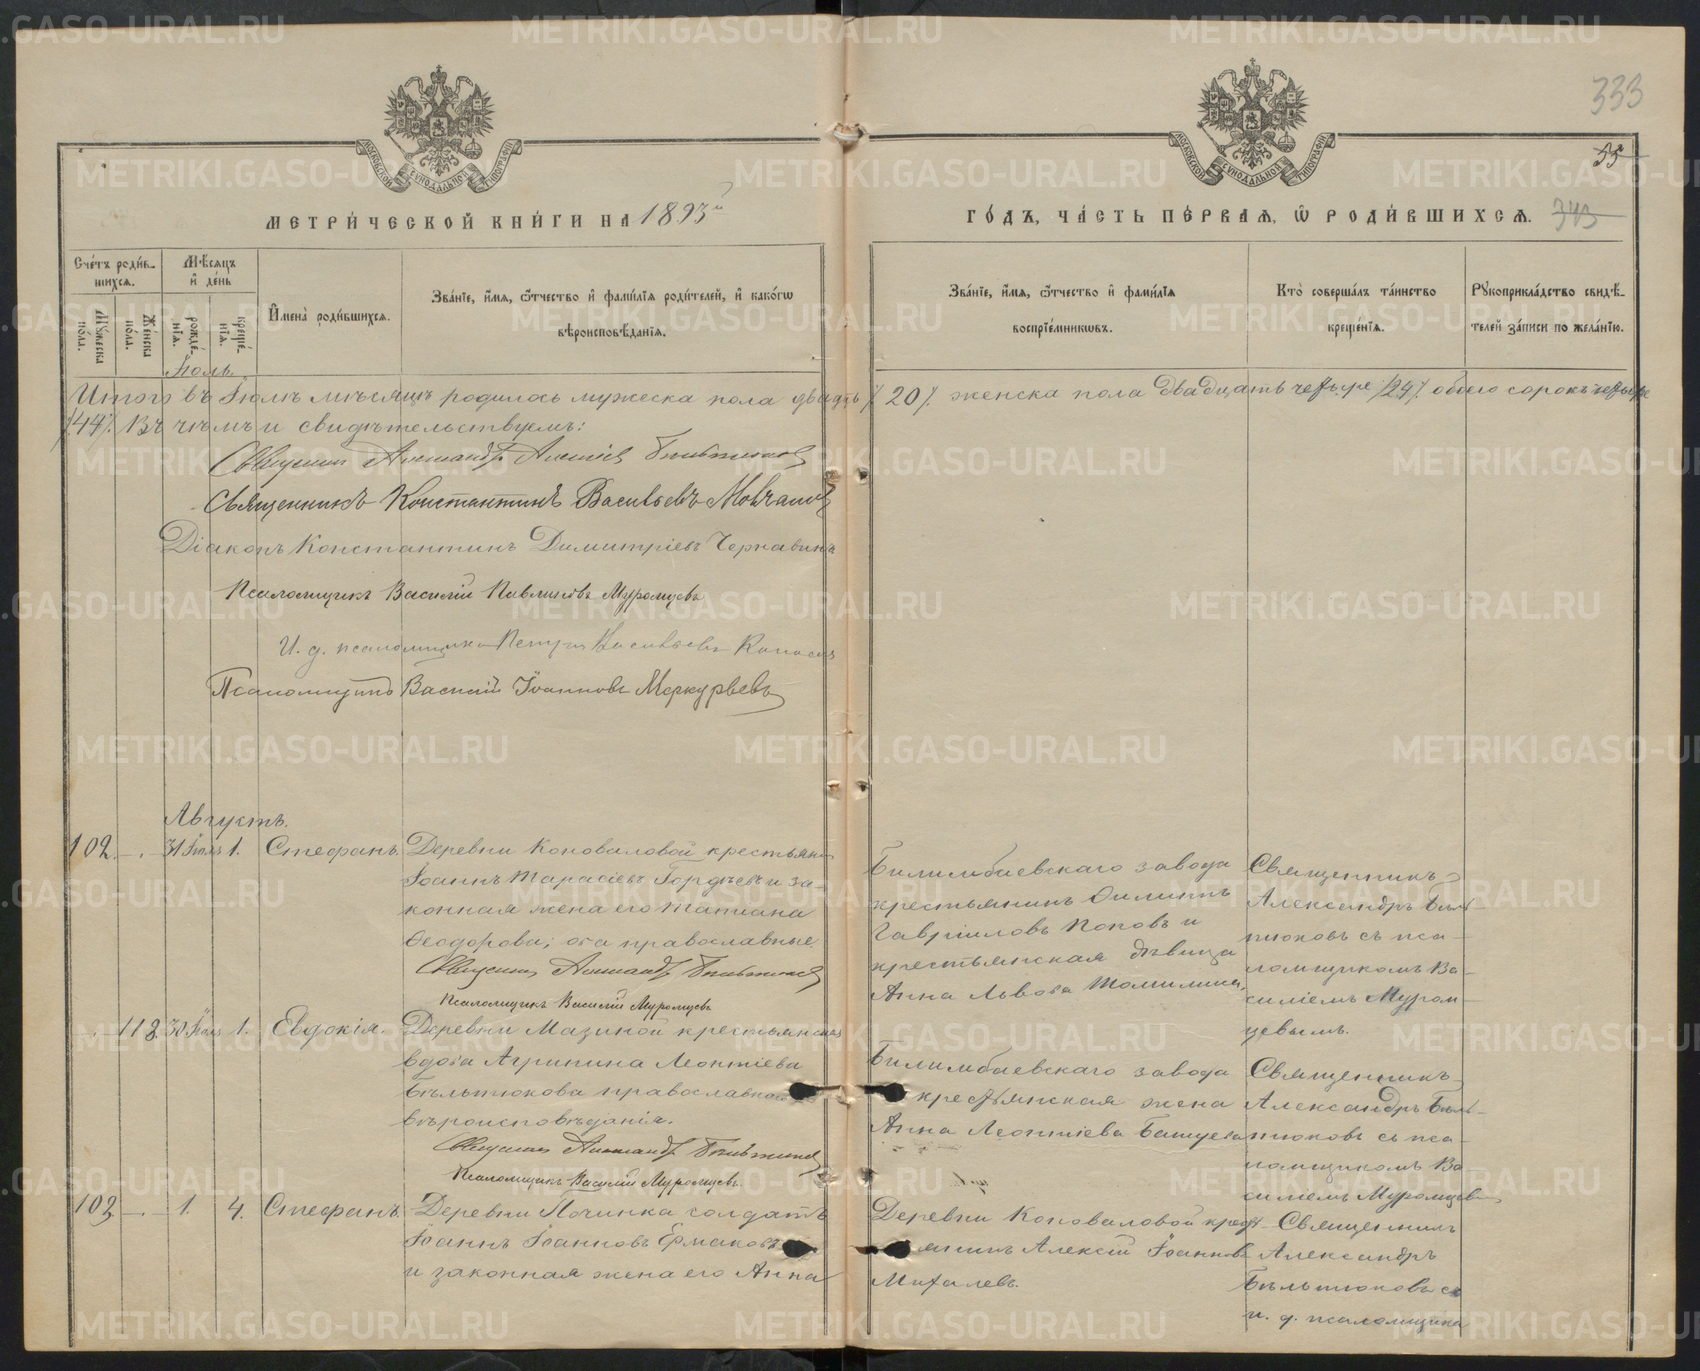 333
55
343
МЕТРИ́ЧЕСКОЙ КНИ́ГИ НА 1893й
ГО́ДЪ, ЧА́СТЬ ПЕ́РВАЯ, Ѡ РОДИ́ВШИХСЯ.
Сче́тъ роди́в-
шихся.
Мѣ́сяцъ
и҆ де́нь
Му́жеска по́ла.
Же́нска по́ла.
рожде́-
нїя.
креще́-
нїя.
И҆мена̀ роди́вшихся.
Зва́нїе, и҆́мя, ѻ҆́тчество и҆ фами́лїя роди́телей, и҆ како́гѡ
вѣроисповѣ́данїя.
Зва́нїе, и҆́мя, ѻ҆́тчество и҆ фами́лїя
воспрїе́мникѡвъ.
Кто̀ соверша́лъ та́инство
креще́нїя.
Рꙋкоприкла́дство свидѣ́-
телей за́писи по жела́нїю.
Іюль.
Итого въ Іюлѣ мѣсяцѣ родилось мужеска пола двадць /20/ женска пола двадцать четыре /24/. обоего сорокъ четыре
/44/. Въ чемъ и свидѣтельствуемъ:
Священникъ Александръ Бѣльтюковъ
Священникъ Константинъ Васильевъ Молчановъ
Діаконъ Константинъ Димитріевъ Чернавинъ
Псаломщикъ Василій Павлиновъ Муромцевъ
И. д. псаломщика Петръ Васильевъ
Псаломщикъ Василій Іоанновъ Меркурьевъ
Августъ.
102. —. 31 Іюля 1. Стефанъ.
Деревни Коноваловой крестьянинъ
Іоаннъ Тарасіевъ Гордѣевъ и за-
конная жена его Татіана
Ѳеодорова, оба православные.
Священникъ Александръ Бѣльтюковъ
Псаломщикъ Василій Муромцевъ
Билимбаевскаго завода
крестьянинъ Филиппъ
Гавріиловъ Поповъ и
крестьянская дѣвица
Анна Львова Томилина.
Священникъ
Александръ Бѣль-
тюковъ съ пса-
ломщикомъ Ва-
силіемъ Муром-
цевымъ.
118. 30 Іюля 1. Евдокія.
Деревни Мазиной крестьянская
вдова Агрипина Леонтіева
Бѣльтюкова православнаго
вѣроисповѣданія.
Священникъ Александръ Бѣльтюковъ
Псаломщикъ Василій Муромцевъ
Билимбаевскаго завода
крестьянская жена
Анна Леонтіева
Священникъ
Александръ Бѣль-
тюковъ съ пса-
ломщикомъ Ва-
силіемъ Муромцев
103. —. 1. 4. Стефанъ.
Деревни Починка солдатъ
Іоаннъ Іоанновъ Ермаковъ
и законная жена его Анна
Деревни Коноваловой крест-
янинъ Алексій Іоанновъ
Михалевъ.
Священникъ
Александръ
Бѣльтюковъ съ
и. д. псаломщика
METRIKI.GASO-URAL.RU